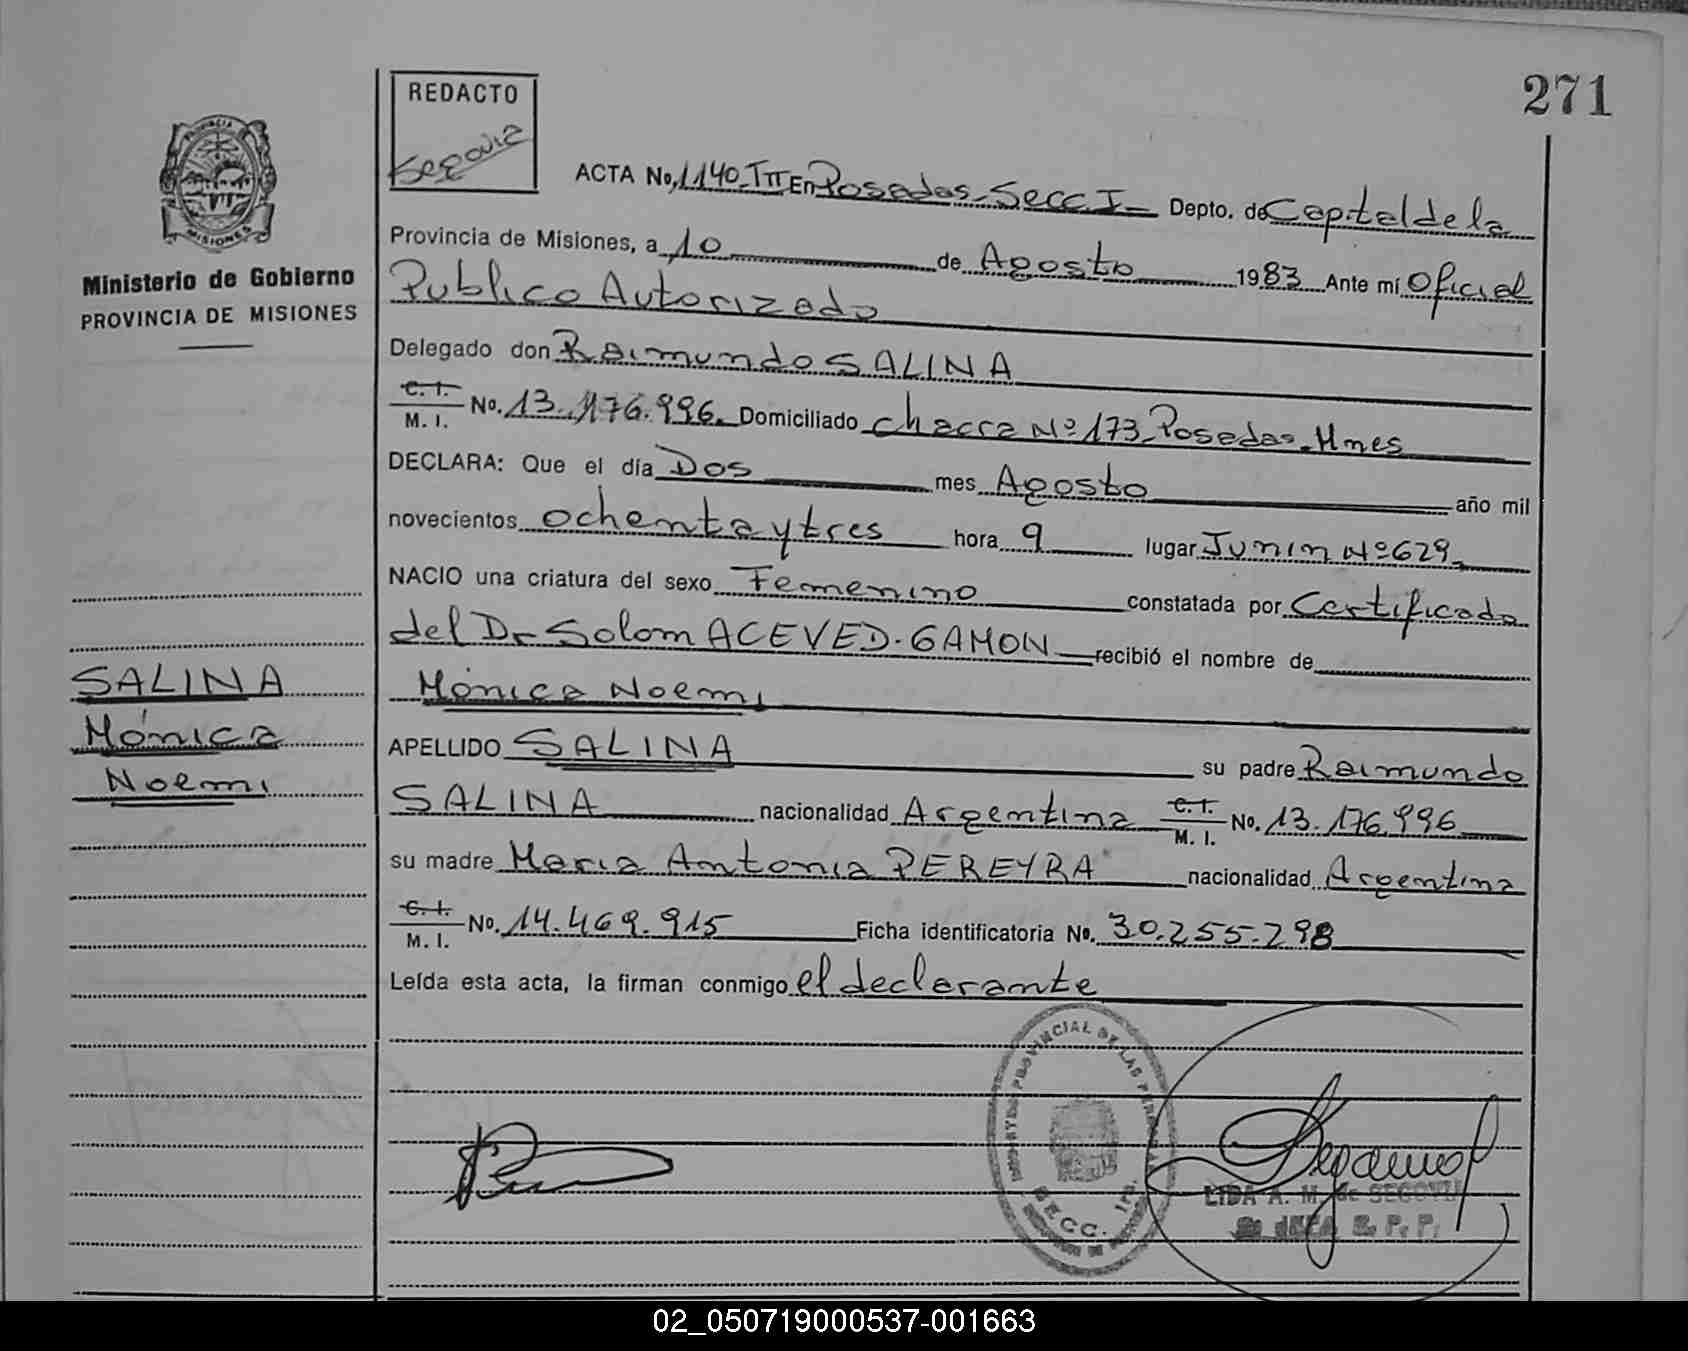 271
REDACTO
Segovia
ACTA No. 1140-TIII En Posadas-Secc I- Depto. de Capital de la
Provincia de Misiones, a 10 de Agosto 1983 Ante mí Oficial
Publico Autorizado
Delegado don Raimundo SALINA
C. I. M. I. No. 13.176.996. Domiciliado chacra Nº 173-Posadas-Mnes
DECLARA: Que el día Dos mes Agosto año mil
novecientos ochenta y tres hora 9 lugar Junin Nº 629
NACIO una criatura del sexo Femenino constatada por Certificado
del Dr Solom ACEVED-GAMON recibió el nombre de
Mónica Noemi
APELLIDO SALINA su padre Raimundo
SALINA nacionalidad Argentina C. I. M. I. No. 13.176.996
su madre Maria Antonia PEREYRA nacionalidad Argentina
C. I. M. I. No. 14.469.915 Ficha identificatoria No. 30.255.298
Leída esta acta, la firman conmigo el declarante
PROVINCIA DE
MISIONES
Ministerio de Gobierno
PROVINCIA DE MISIONES
SALINA
Mónica
Noemi
PROVINCIAL DE LAS PERSONAS
SECC. 1ra.
LIDA A. M. de SEGOVIA
JEFA
02_050719000537-001663